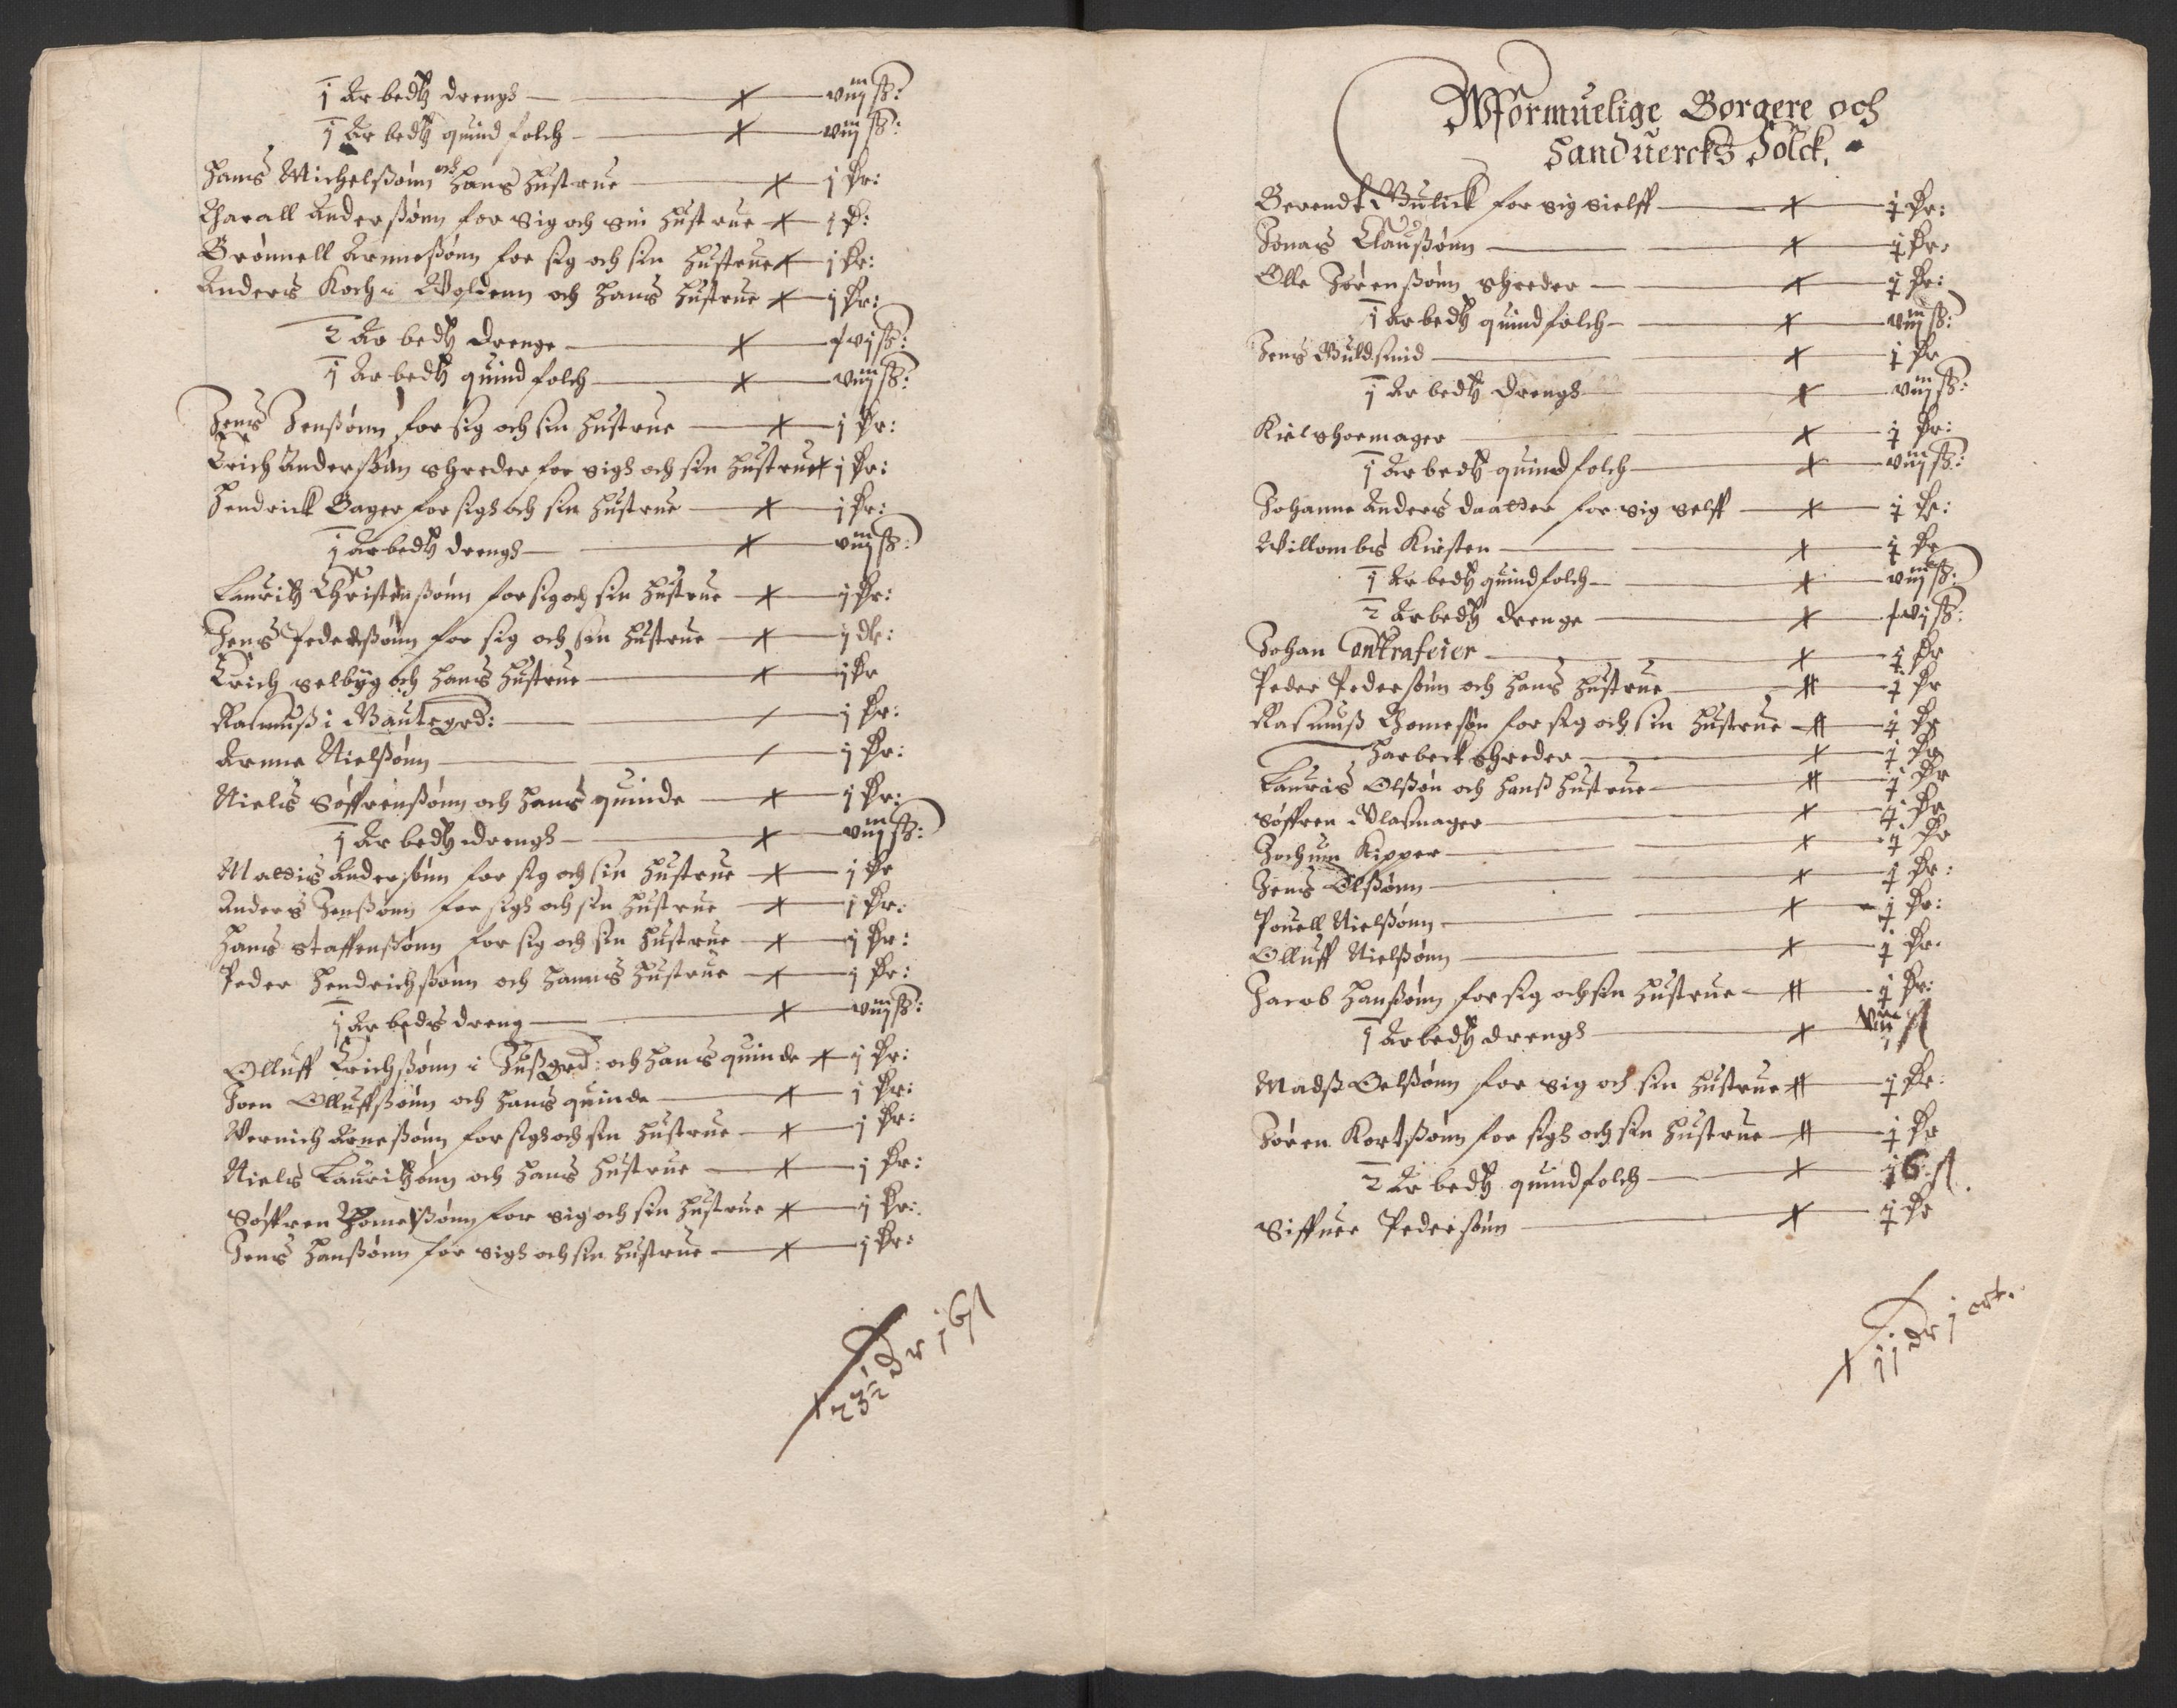 1 Arbedtz drengh — viij ß:
1 Arbedtz quindfolch — viij ß:
Hans Michelßønn och hans hustrue — j dr:
Harall Anderßønn for sig och sin hustrue — j d:
Brønnell Arnneßønn for sig och sin hustrue — j dr:
Anders Koch i Woldenn och hans hustrue — j dr:
2 Arbedtz drenge — xvj ß:
1 Arbedtz quindfolch — viij ß:
Jens Jenßønn for sig och sin hustrue — j dr:
Erich Anderßøn shreder for sigh och sin hustrue j dr:
Hendrick Bager for sigh och sin hustrue — j dr:
1 Arbedtz drengh — viij ß:
Lauritz Christenßønn for sig och sin hustrue — j dr:
Jens Pederßønn for sig och sin hustrue — j dlr:
Erich selbyg och hans hustrue — j dr
Rasmuß i Bautegrd: — j dr:
Arnne Nielßønn — j dr:
Niels Søffrenßønn och hans quinde — j dr:
1 Arbedtz drengh — viij ß:
Mattis Anderßønn for sig och sin hustrue — j dr
Anders Jenßønn for sigh och sin hustrue — j dr:
Hans staffenßønn for sig och sin hustrue — j dr:
Peder Hendrichßønn och hanns hustrue — j dr:
1 Arbeds dreng — viij ß:
Olluff Erichßønn i Jußgrd: och hans quinde j dr:
Joen Olluffßønn och hans quinde — j dr:
Wernich Arneßønn for sigh och sin hustrue — j dr:
Niels Lauritzønn och hans hustrue — j dr:
Søffren Thomeßønn for sig och sin hustrue j dr:
Jens Hanßønn for sigh och sin hustrue — j dr:
23½ dr 16 ß
Wformuelige Borgere och
Handuercks Folck.
Berendt Gulick for sig sielff — j dr:
Jonas Claußønn — j dr:
Olle Jørenßønn shreder — j dr:
1 Arbedtz quindfolch — viij ß:
Jens Guldsmid — j dr
1 Arbedtz drengh — viij ß:
Kield shoemager — j dr:
1 Arbedtz quindfolch — viij ß:
Johanne Anders daatter for sig selff — j dr:
Willombs Kirsten — j dr
1 Arbedtz quindfolch — viij ß:
2 Arbedtz drenge — xvj ß:
Johan Contrafeier — j dr
Peder Pederßønn och hans hustrue — j dr
Rasmuß Thomeßøn for sig och sin hustrue — j dr
Harbert shreder — j dr
Lauris Olßøn och hanß hustrue — j dr
Søffren Glasmager — j dr
Jochum Kipper — j dr
Jens Olßønn — j dr:
Pouell Nielßønn — j dr:
Olluff Nielßønn — j dr:
Jacob Hanßønn for sig och sin hustrue — j dr:
1 Arbedtz drengh — viij ß
Madß Oelßønn for sig och sin hustrue — j dr:
Jøren Kortßønn for sigh och sin hustrue — j dr
2 Arbedtz quindfolch — 16 ß.
Siffuer Pederßønn — j dr
11 dr 1 ort.